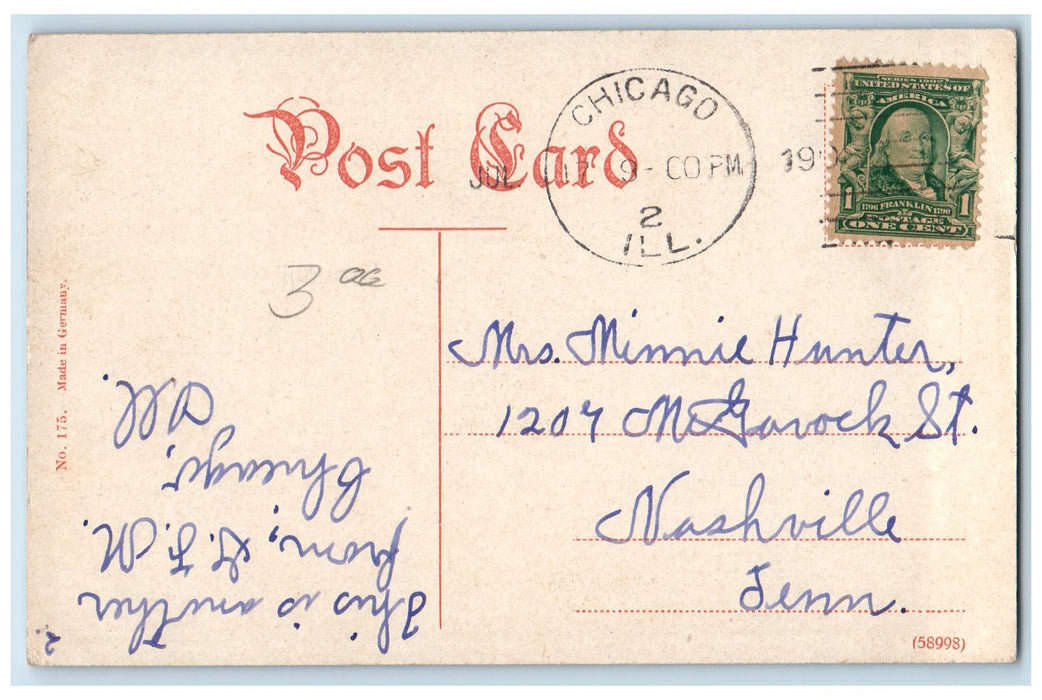 Post Card
CHICAGO
JUL 17 9-00 PM
2
ILL.
SERIES 1902
UNITED STATES OF
AMERICA
1 1
1706 FRANKLIN 1790
POSTAGE
ONE CENT
3 00
Mrs. Minnie Hunter,
1207 McGavock St.
Nashville
Tenn.
(58998)
No. 175. Made in Germany.
2.
This is another
from, G. F. M.
Chicago,
Ill.